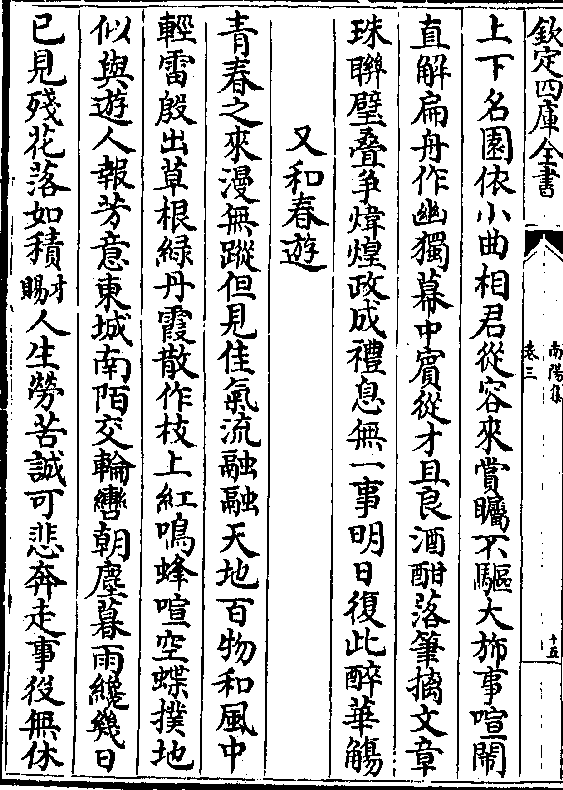 欽定四庫全書
南陽集
卷三
十五
上下名園依小曲相君從容來賞矚不驅大斾事喧鬧
直解扁舟作幽獨幕中賓從才且良酒酣落筆摛文章
珠聯璧叠争煒煌政成禮息無一事明日復此醉華觴
又和春遊
青春之來漫無蹤但見佳氣流融融天地百物和風中
輕雷殷出草根綠丹霞散作枝上紅鳴蜂喧空蝶撲地
似與遊人報芳意東城南陌交輪轡朝塵暮雨纔幾日
已見殘花落如積才賜人生勞苦誠可悲奔走事役無休